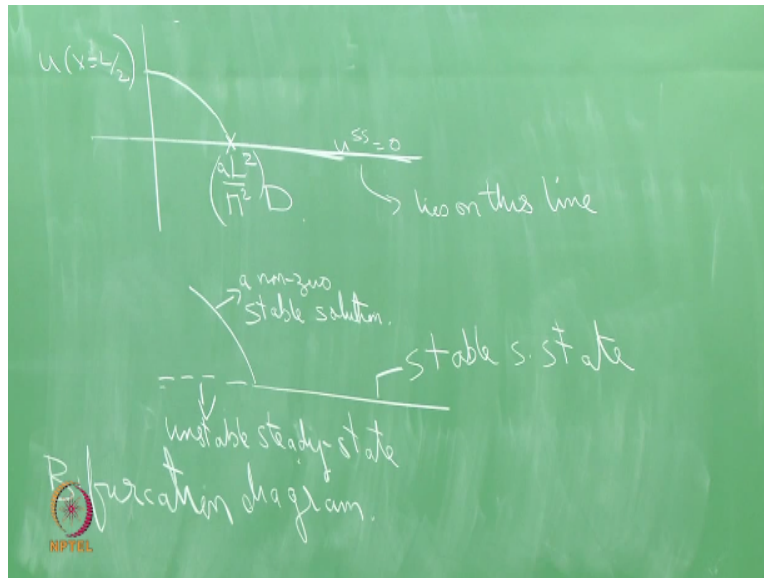 u(x=L/2)
u^ss=0
(aL²/π²) D
lies on this line
a non-zero
stable solution.
stable s. state
unstable steady-state
Bifurcation diagram.
NPTEL